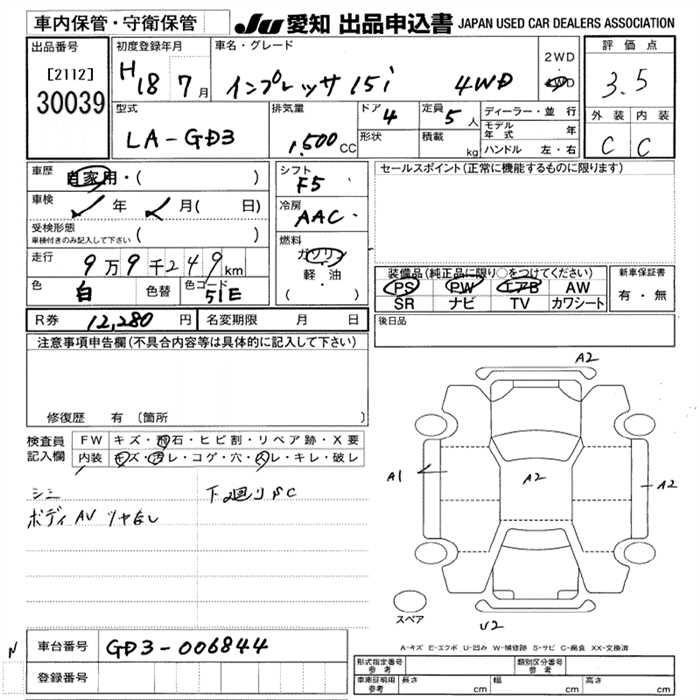 車内保管・守衛保管
JU 愛知 出品申込書 JAPAN USED CAR DEALERS ASSOCIATION
出品番号
[2112]
30039
初度登録年月
H18 7月
車名・グレード
インプレッサ 15i 4WD
2WD
4WD
評価点
3.5
外装 内装
C C
型式
LA-GD3
排気量
1,500cc
ドア
4
形状
定員
5人
積載
kg
ディーラー・並行
モデル年式 年
ハンドル 左・右
車歴
自家用・( )
車検
年 月( 日)
受検形態
車検付きのみ記入して下さい ( )
走行
9万9千249km
色
白 色替
色コード
51E
シフト
F5
冷房
AAC
燃料
ガソリン
軽・油
( ・ )
セールスポイント(正常に機能するものに限ります)
装備品(純正品に限り○をつけてください)
PS PW エアB AW
SR ナビ TV カワシート
新車保証書
有・無
後日品
R券 12,280円
名変期限 月 日
注意事項申告欄(不具合内容等は具体的に記入して下さい)
修復歴 有 〔箇所
検査員記入欄
FW キズ・飛石・ヒビ割・リペア跡・X要
内装 キズ・汚レ・コゲ・穴・スレ・キレ・破レ
シミ
ボディAV ツヤなし
下廻りSC
A2
A1
A2
A2
U2
スペア
A-キズ E-エクボ U-凹み W-補修跡 S-サビ C-腐食 XX-交換済
N
車台番号 GD3-006844
登録番号
形式指定番号 参考
類別区分番号 参考
車庫証明用 参考 長さ cm 幅 cm 高さ cm